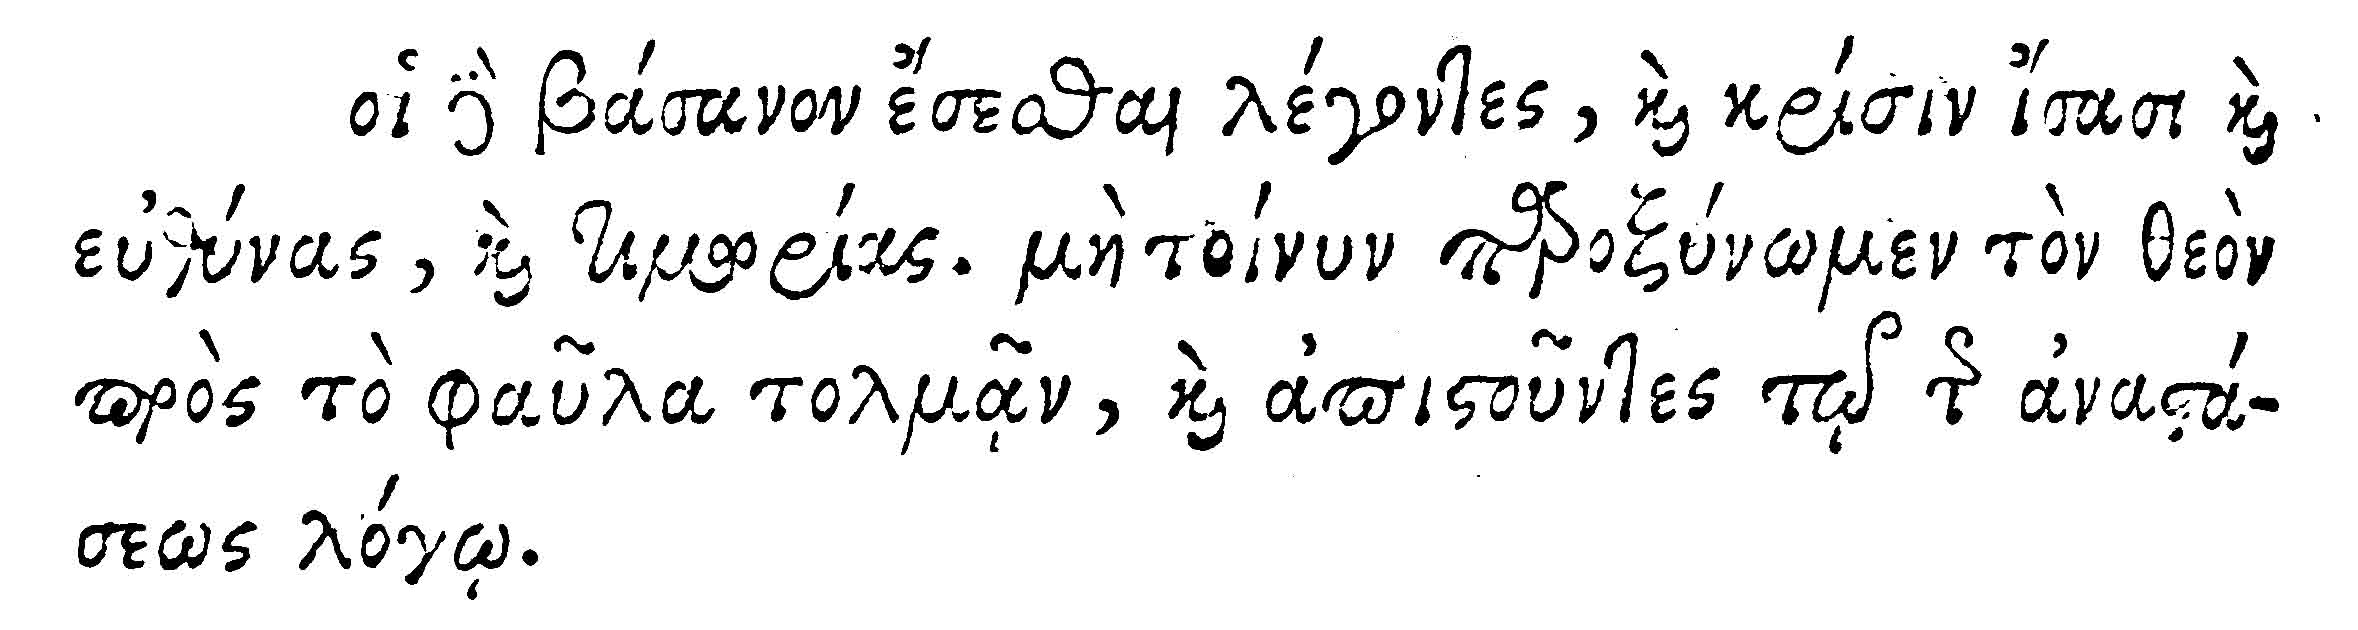 οἱ ȣ̈̀ βάσανον ἔσεσθαι λέγοντες, ϗ̀ κρίσιν ἴσασι ϗ̀
εὐθύνας, ϗ̀ τιμωρίας. μὴ τοίνυν παροξύνωμεν τὸν θεὸν
πρὸς τὸ φαῦλα τολμᾷν, ϗ̀ ἀπιϛοῦντες τῷ τ ἀναϛά-
σεως λόγῳ.